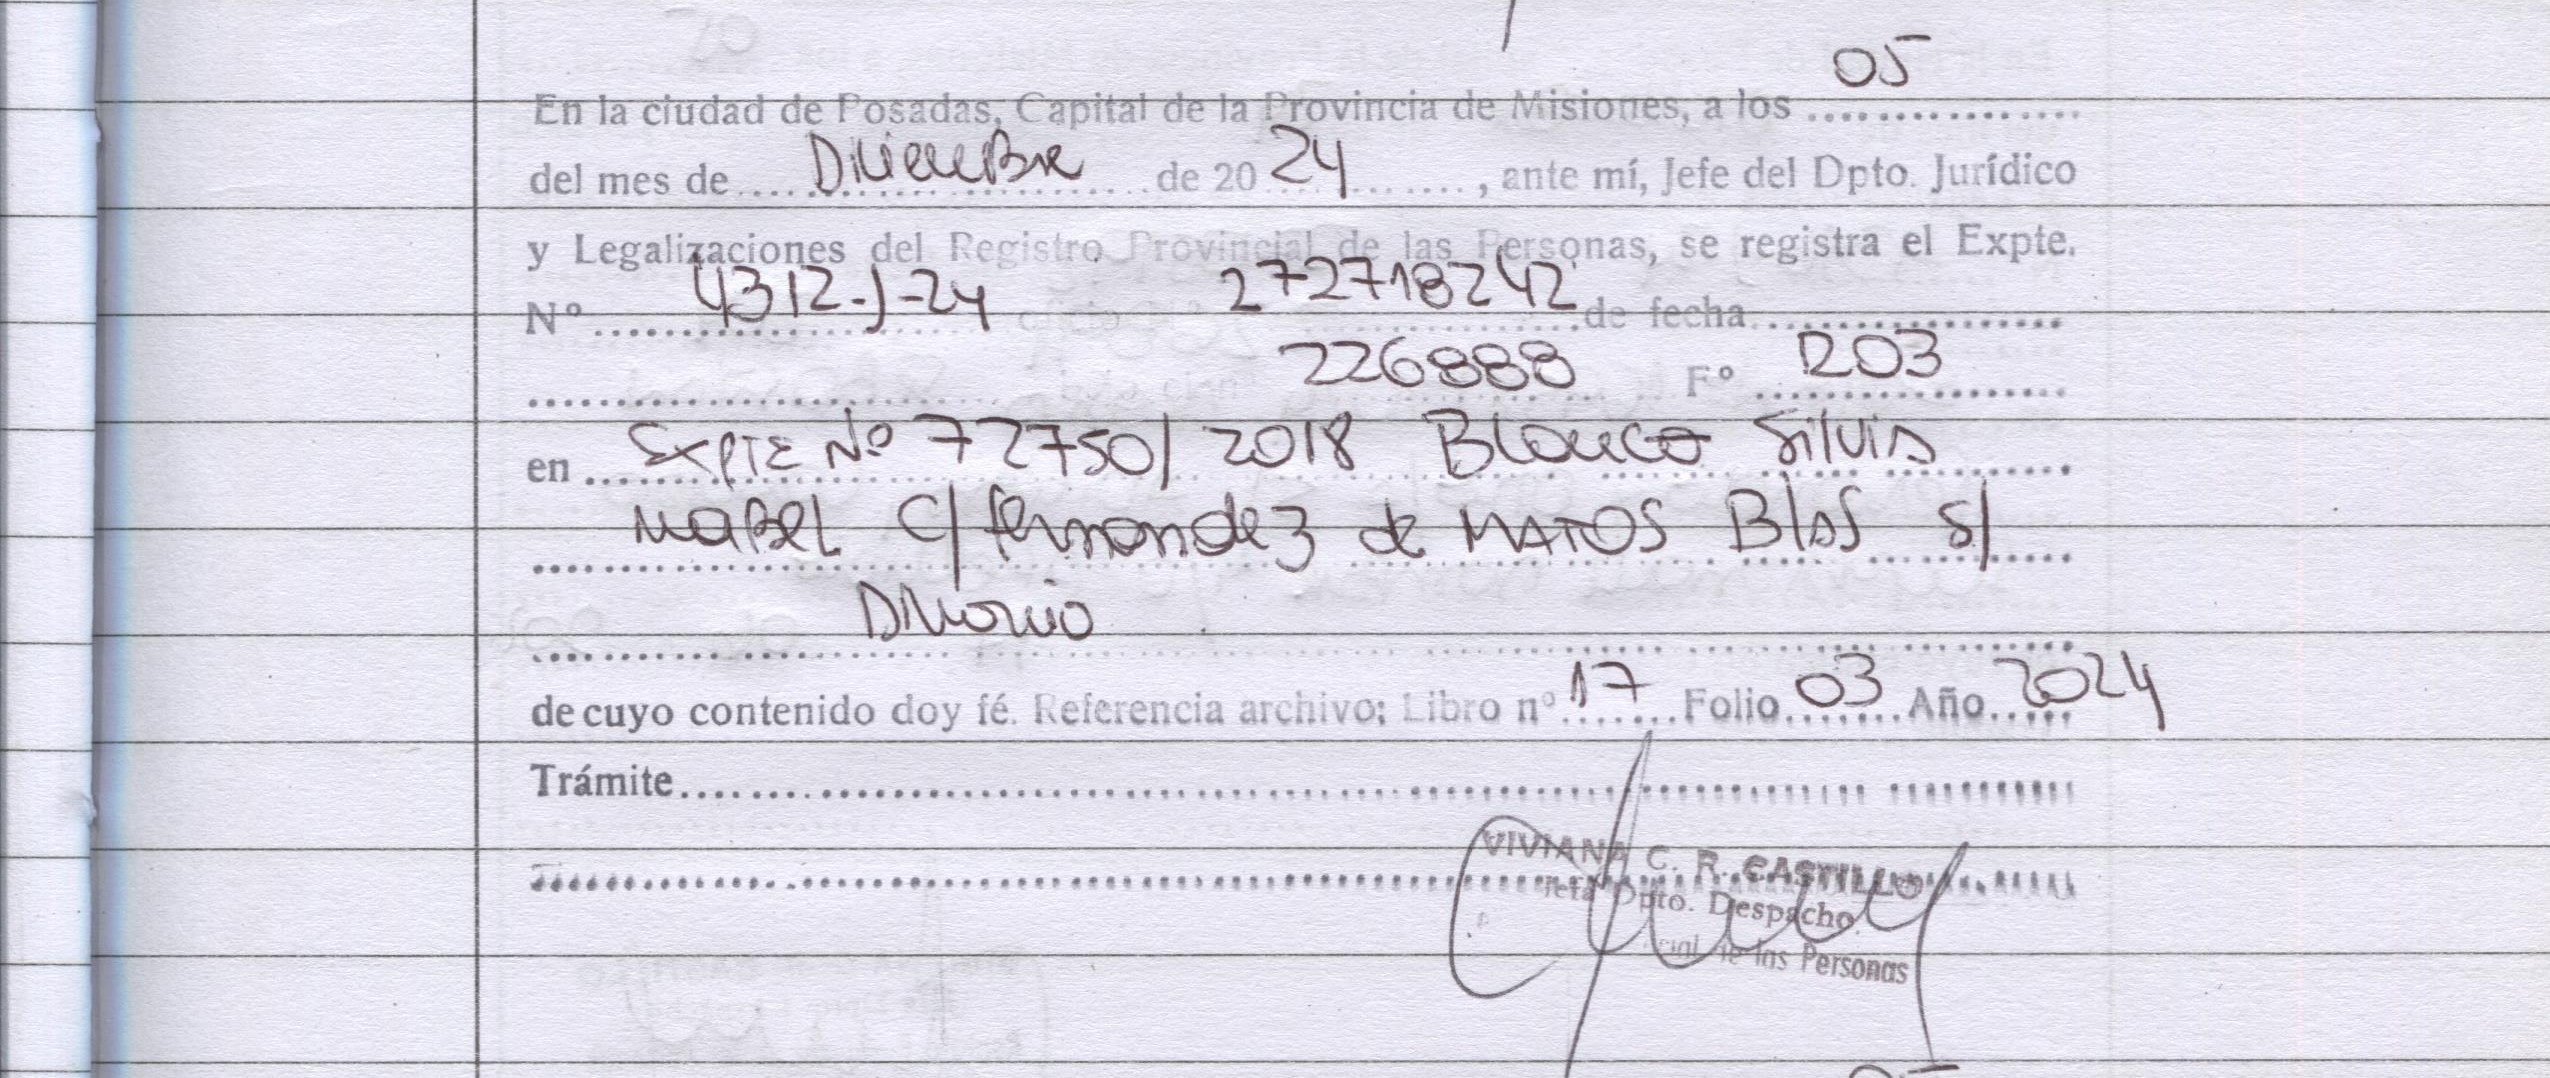 05
En la ciudad de Posadas, Capital de la Provincia de Misiones, a los ................
del mes de .... Diciembre .... de 20 24 ........, ante mí, Jefe del Dpto. Jurídico
y Legalizaciones del Registro Provincial de las Personas, se registra el Expte.
Nº ........ 4312-J-24 272718242 ........ de fecha ................
........ 226888 Fº 1203
en .... Expte Nº 72750/2018 Blanco Silvia
Mabel C/ Fernandez de MATOS Blas S/
Divorcio
de cuyo contenido doy fé. Referencia archivo; Libro nº 17 Folio 03 Año 2024
Trámite................
VIVIANA C. R. CASTILLO
Jefa Dpto. Despacho
de las Personas